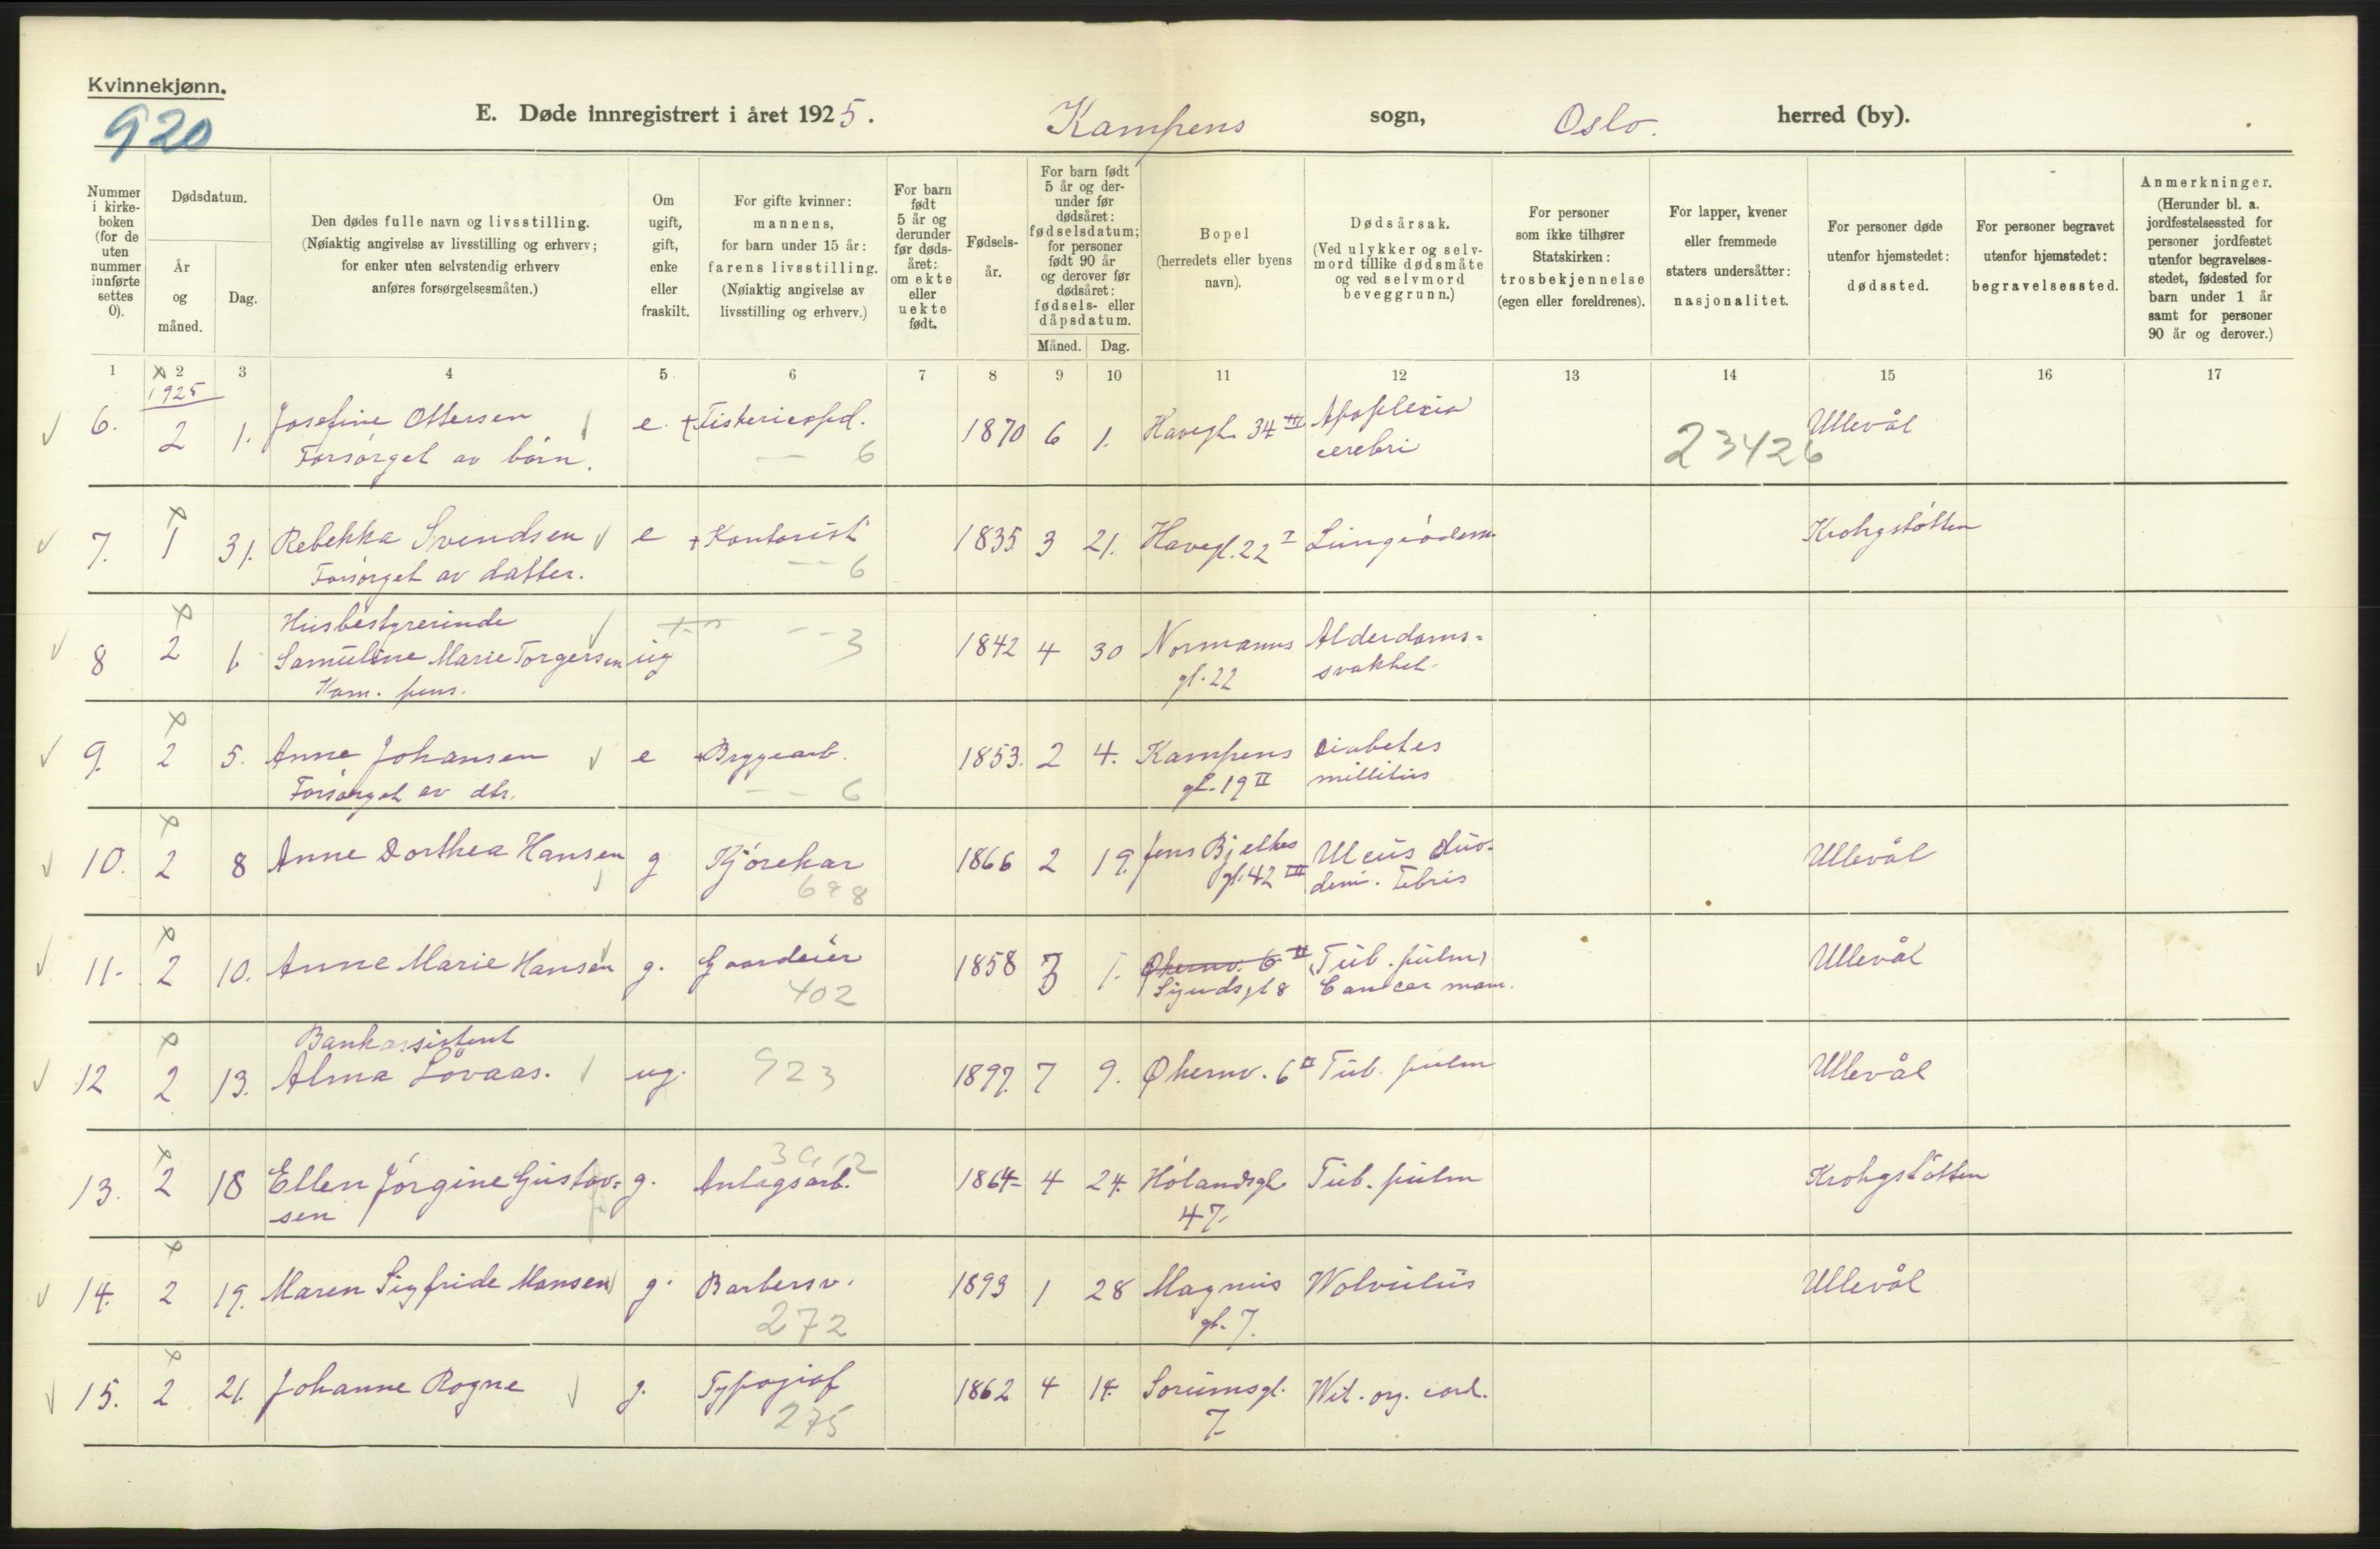 Kvinnekjønn.
920
E. Døde innregistrert i året 1925. Kampens sogn, Oslo. herred (by).
Nummer i kirkeboken (for de uten nummer innførte settes 0).
Dødsdatum.
År og måned.
Dag.
Den dødes fulle navn og livsstilling. (Nøiaktig angivelse av livsstilling og erhverv; for enker uten selvstendig erhverv anføres forsørgelsesmåten.)
Om ugift, gift, enke eller fraskilt.
For gifte kvinner: mannens, for barn under 15 år: farens livsstilling. (Nøiaktig angivelse av livsstilling og erhverv.)
For barn født 5 år og derunder før dødsåret: om ekte eller uekte født.
Fødselsår.
For barn født 5 år og derunder før dødsåret: fødselsdatum; for personer født 90 år og derover før dødsåret: fødsels- eller dåpsdatum.
Måned. Dag.
Bopel (herredets eller byens navn).
Dødsårsak. (Ved ulykker og selvmord tillike dødsmåte og ved selvmord beveggrunn.)
For personer som ikke tilhører Statskirken: trosbekjennelse (egen eller foreldrenes).
For lapper, kvener eller fremmede staters undersåtter: nasjonalitet.
For personer døde utenfor hjemstedet: dødssted.
For personer begravet utenfor hjemstedet: begravelsessted.
Anmerkninger. (Herunder bl. a. jordfestelsessted for personer jordfestet utenfor begravelsesstedet, fødested for barn under 1 år samt for personer 90 år og derover.)
1 2 3 4 5 6 7 8 9 10 11 12 13 14 15 16 17
1925
6. 2 1. Josefine Ottersen e. 1870 6 1. Havegt 34 III Apoplexia Ullevål
Forsørget av børn. 6 cerebri 23426
7. 1 31. Rebekka Svendsen e + Kontorist 1835 3 21. Havegt. 22 I Krohgstøtten
Forsørget av datter. 6
Husbestyrerinde
8 2 1 Samuline Marie Torgersen ug 3 1842 4 30 Normanns Alderdoms-
Kom. pens. gt. 22 svakhet
9. 2 5. Anne Johansen e + Bryggearb. 1853. 2 4. Kampens Diabetes
Forsørget av dtr. 6 gt. 19 II millitus
10. 2 8 Anne Dorthea Hansen g Kjørekar 1866 2 19. Jens Bjelkes Ulcus duo-
gt. 42 III Ullevål
11. 2 10. Anne Marie Hansen g. Gaardeier 1858 3 1. Økernv. 6 II (Tub. pulm) Ullevål
402 Sigurdsgt 8 Cancer mam.
Bankassistent
12 2 13. Alma Løvaas. ug. 923 1897. 7 9. Økernv. 6 II Tub. pulm Ullevål
13. 2 18 Ellen Jørgine Gustav- g. Anlegsarb. 1864 4 24. Hølandsgt. Tub. pulm Krohgstøtten
sen 47.
14. 2 19. Maren Sigfride Hansen g. Barbersv. 1893 1 28 Magnus Wolvulus Ullevål
272 gt. 7.
15. 2 21. Johanne Rogne g. Typograf 1862 4 14. Sørumsgt. Vit. org. cord.
275 7.